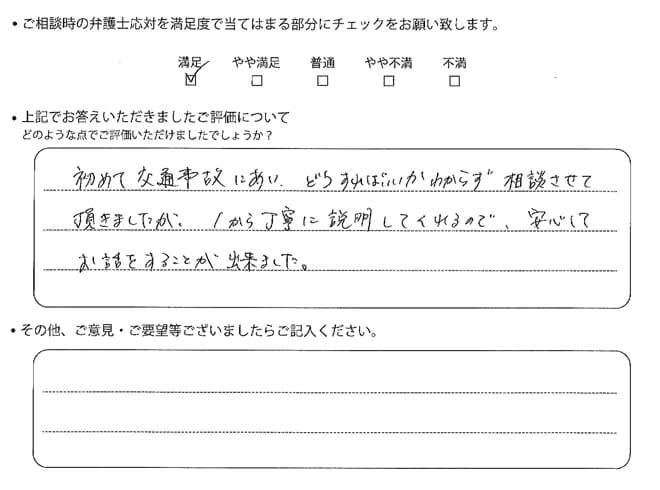 • ご相談時の弁護士応対を満足度で当てはまる部分にチェックをお願い致します。
満足 やや満足 普通 やや不満 不満
☑ □ □ □ □
• 上記でお答えいただきましたご評価について
どのような点でご評価いただけましたでしょうか？
初めて交通事故にあい、どうすればいいかわからず相談させて
頂きましたが、1から丁寧に説明してくれるので、安心して
お話をすることが出来ました。
• その他、ご意見・ご要望等ございましたらご記入ください。